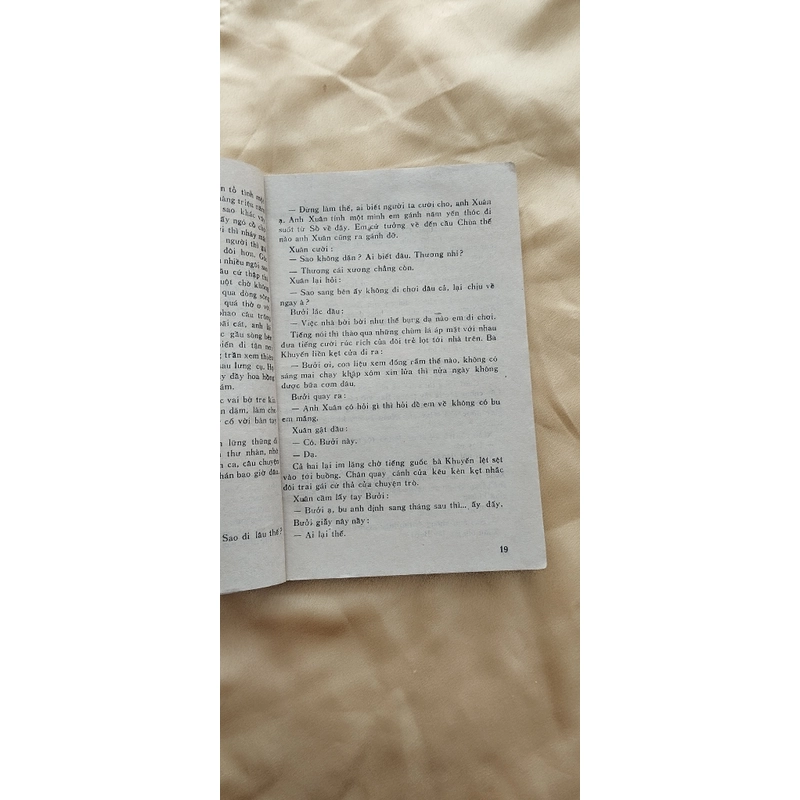 n tỏ tình một
àng triệu năm
sao khác vẫn
ấy ngỏ cổ cho
rời thì nháy mắt
người thì gi
đôi hơn. Gi
nhiều ngôi sao
âu cứ thập thò
uột chờ không
qua dòng sông
quá thờ ơ với
phao câu trông
bãi cát, anh lá
gầu sòng bên
iến đi tận nơi
trần xem thiên
sau lưng cụ. Họ
y đầy hoa hồng
ám.
c vai bờ tre kia
n dặm, làm cho
cố với bàn tay
n lững thững đi
thư nhàn, nhỏ
n ca, câu chuyện
hán bao giờ đâu.
Sao đi lâu thế?
— Đừng làm thế, ai biết người ta cười cho, anh Xuân
ạ. Anh Xuân tính một mình em gánh năm yến thóc đi
suốt từ Sô về đây. Em cứ tưởng về đến cầu Chùa thế
nào anh Xuân cũng ra gánh đỡ.
Xuân cười :
— Sao không dặn ? Ai biết đâu. Thương nhỉ ?
— Thương cái xương chẳng còn.
Xuân lại hỏi :
— Sao sang bên ấy không đi chơi đâu cả, lại chịu về
ngay à ?
Bưởi lắc đầu :
— Việc nhà bời bời như thế bụng dạ nào em đi chơi.
Tiếng nói thì thào qua những chùm lá áp mặt với nhau
đưa tiếng cười rúc rích của đôi trẻ lọt tới nhà trên. Bà
Khuyến liền kẹt cửa đi ra :
— Bưởi ơi, con liệu xem đống rấm thế nào, không có
sáng mai chạy khắp xóm xin lửa thì nửa ngày không
được bữa cơm đâu.
Bưởi quay ra :
— Anh Xuân có hỏi gì thì hỏi để em về không có bu
em mắng.
Xuân gật đầu :
— Có. Bưởi này.
— Dạ.
Cả hai lại im lặng chờ tiếng guốc bà Khuyến lệt sệt
vào tới buồng. Chân quay cánh cửa kêu kèn kẹt nhắc
đôi trai gái cứ thả cửa chuyện trò.
Xuân cầm lấy tay Bưởi :
— Bưởi ạ, bu anh định sang tháng sau thì... ấy đấy.
Bưởi giẫy nảy nảy :
— Ai lại thế.
19